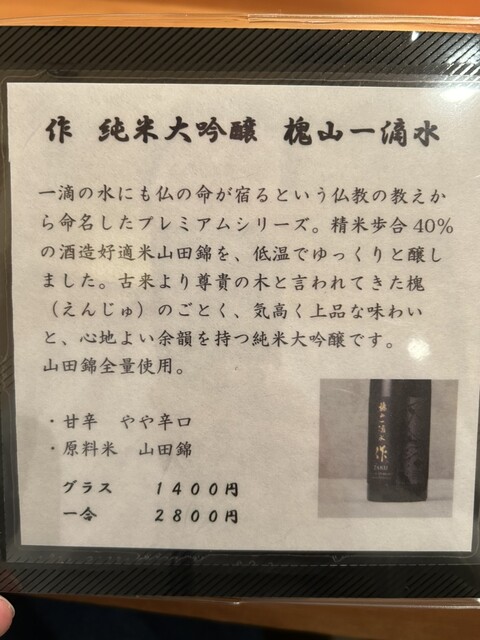 作 純米大吟醸 槐山一滴水
一滴の水にも仏の命が宿るという仏教の教えか
ら命名したプレミアムシリーズ。精米歩合40%
の酒造好適米山田錦を、低温でゆっくりと醸し
ました。古来より尊貴の木と言われてきた槐
（えんじゅ）のごとく、気高く上品な味わい
と、心地よい余韻を持つ純米大吟醸です。
山田錦全量使用。
・甘辛 やや辛口
・原料米 山田錦
グラス 1400円
一合 2800円
槐山一滴水
作